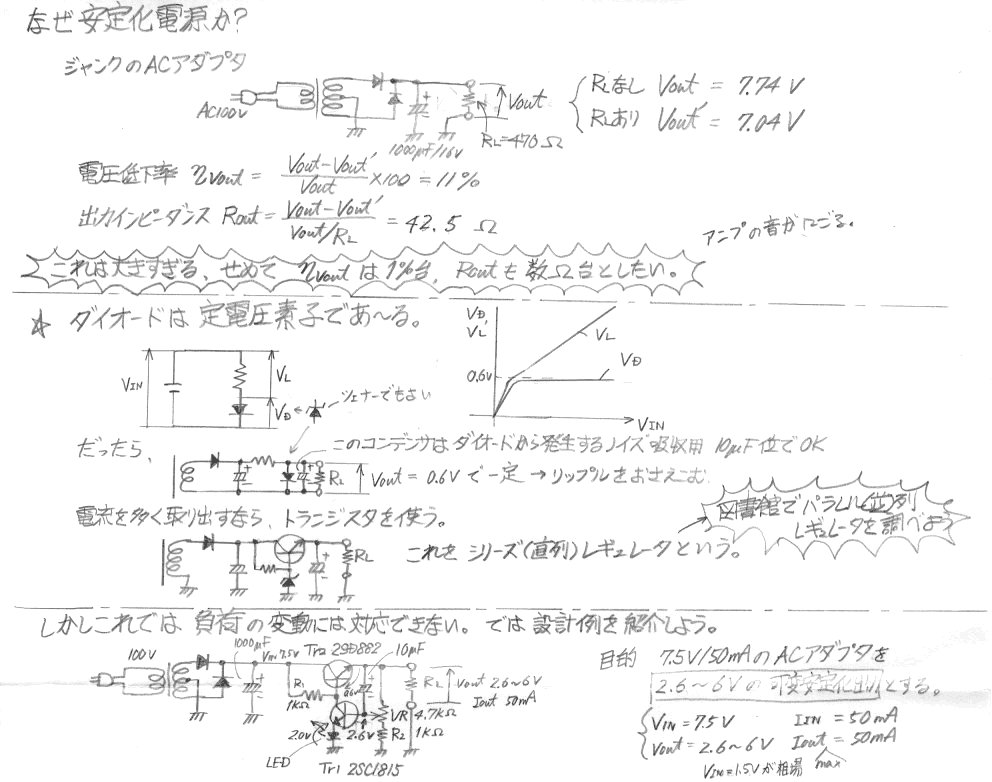 なぜ安定化電源か?
ジャンクのACアダプタ
AC100V
1000μF/16V
Vout
RL=470Ω
RLなし Vout = 7.74 V
RLあり Vout' = 7.04 V
電圧低下率 ηvout = (Vout-Vout')/Vout ×100 = 11%
出力インピーダンス Rout = (Vout-Vout')/(Vout/RL) = 42.5 Ω
アンプの音がにごる。
これは大きすぎる、せめて ηvout は1%台、Routも数Ω台としたい。
☆ ダイオードは 定電圧素子であ〜る。
VIN
VL
VD
ツェナーでもよい
VD, VL
0.6V
VL
VD
VIN
だったら、
このコンデンサはダイオードから発生するノイズ吸収用 10μF位でOK
RL
Vout = 0.6Vで一定 → リップルをおさえこむ
電流を多く取り出すなら、トランジスタを使う。
RL
これを シリーズ(直列)レギュレータという。
図書館でパラレル(並)列
レギュレータを調べよう
しかしこれでは 負荷の変動には対応できない。では 設計例を紹介しよう。
100V
1000μF
VIN 7.5V
Tr2 2SD882
10μF
R1
1KΩ
0.6V
2.0V
2.6V
LED
Tr1 2SC1815
VR 4.7KΩ
R2 1KΩ
RL
Vout 2.6〜6V
Iout 50mA
目的 7.5V/50mAのACアダプタを
2.6〜6Vの可変安定化出力とする。
VIN=7.5V IIN=50mA
Vout=2.6〜6V Iout=50mA
max
VIN=1.5Vが相場